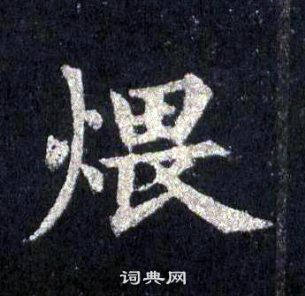 煨
词典网